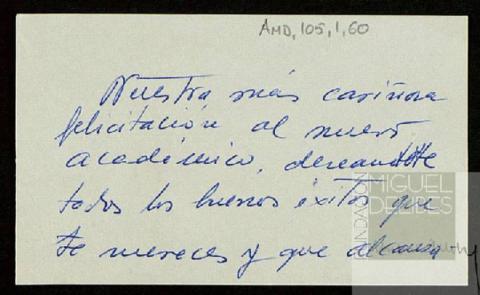 AMD, 105, 1, 60
Nuestra más cariñosa
felicitación al nuevo
académico, deseandote
todos los buenos éxitos que
te mereces y que
FUNDACIÓN
MIGUEL
DELIBES